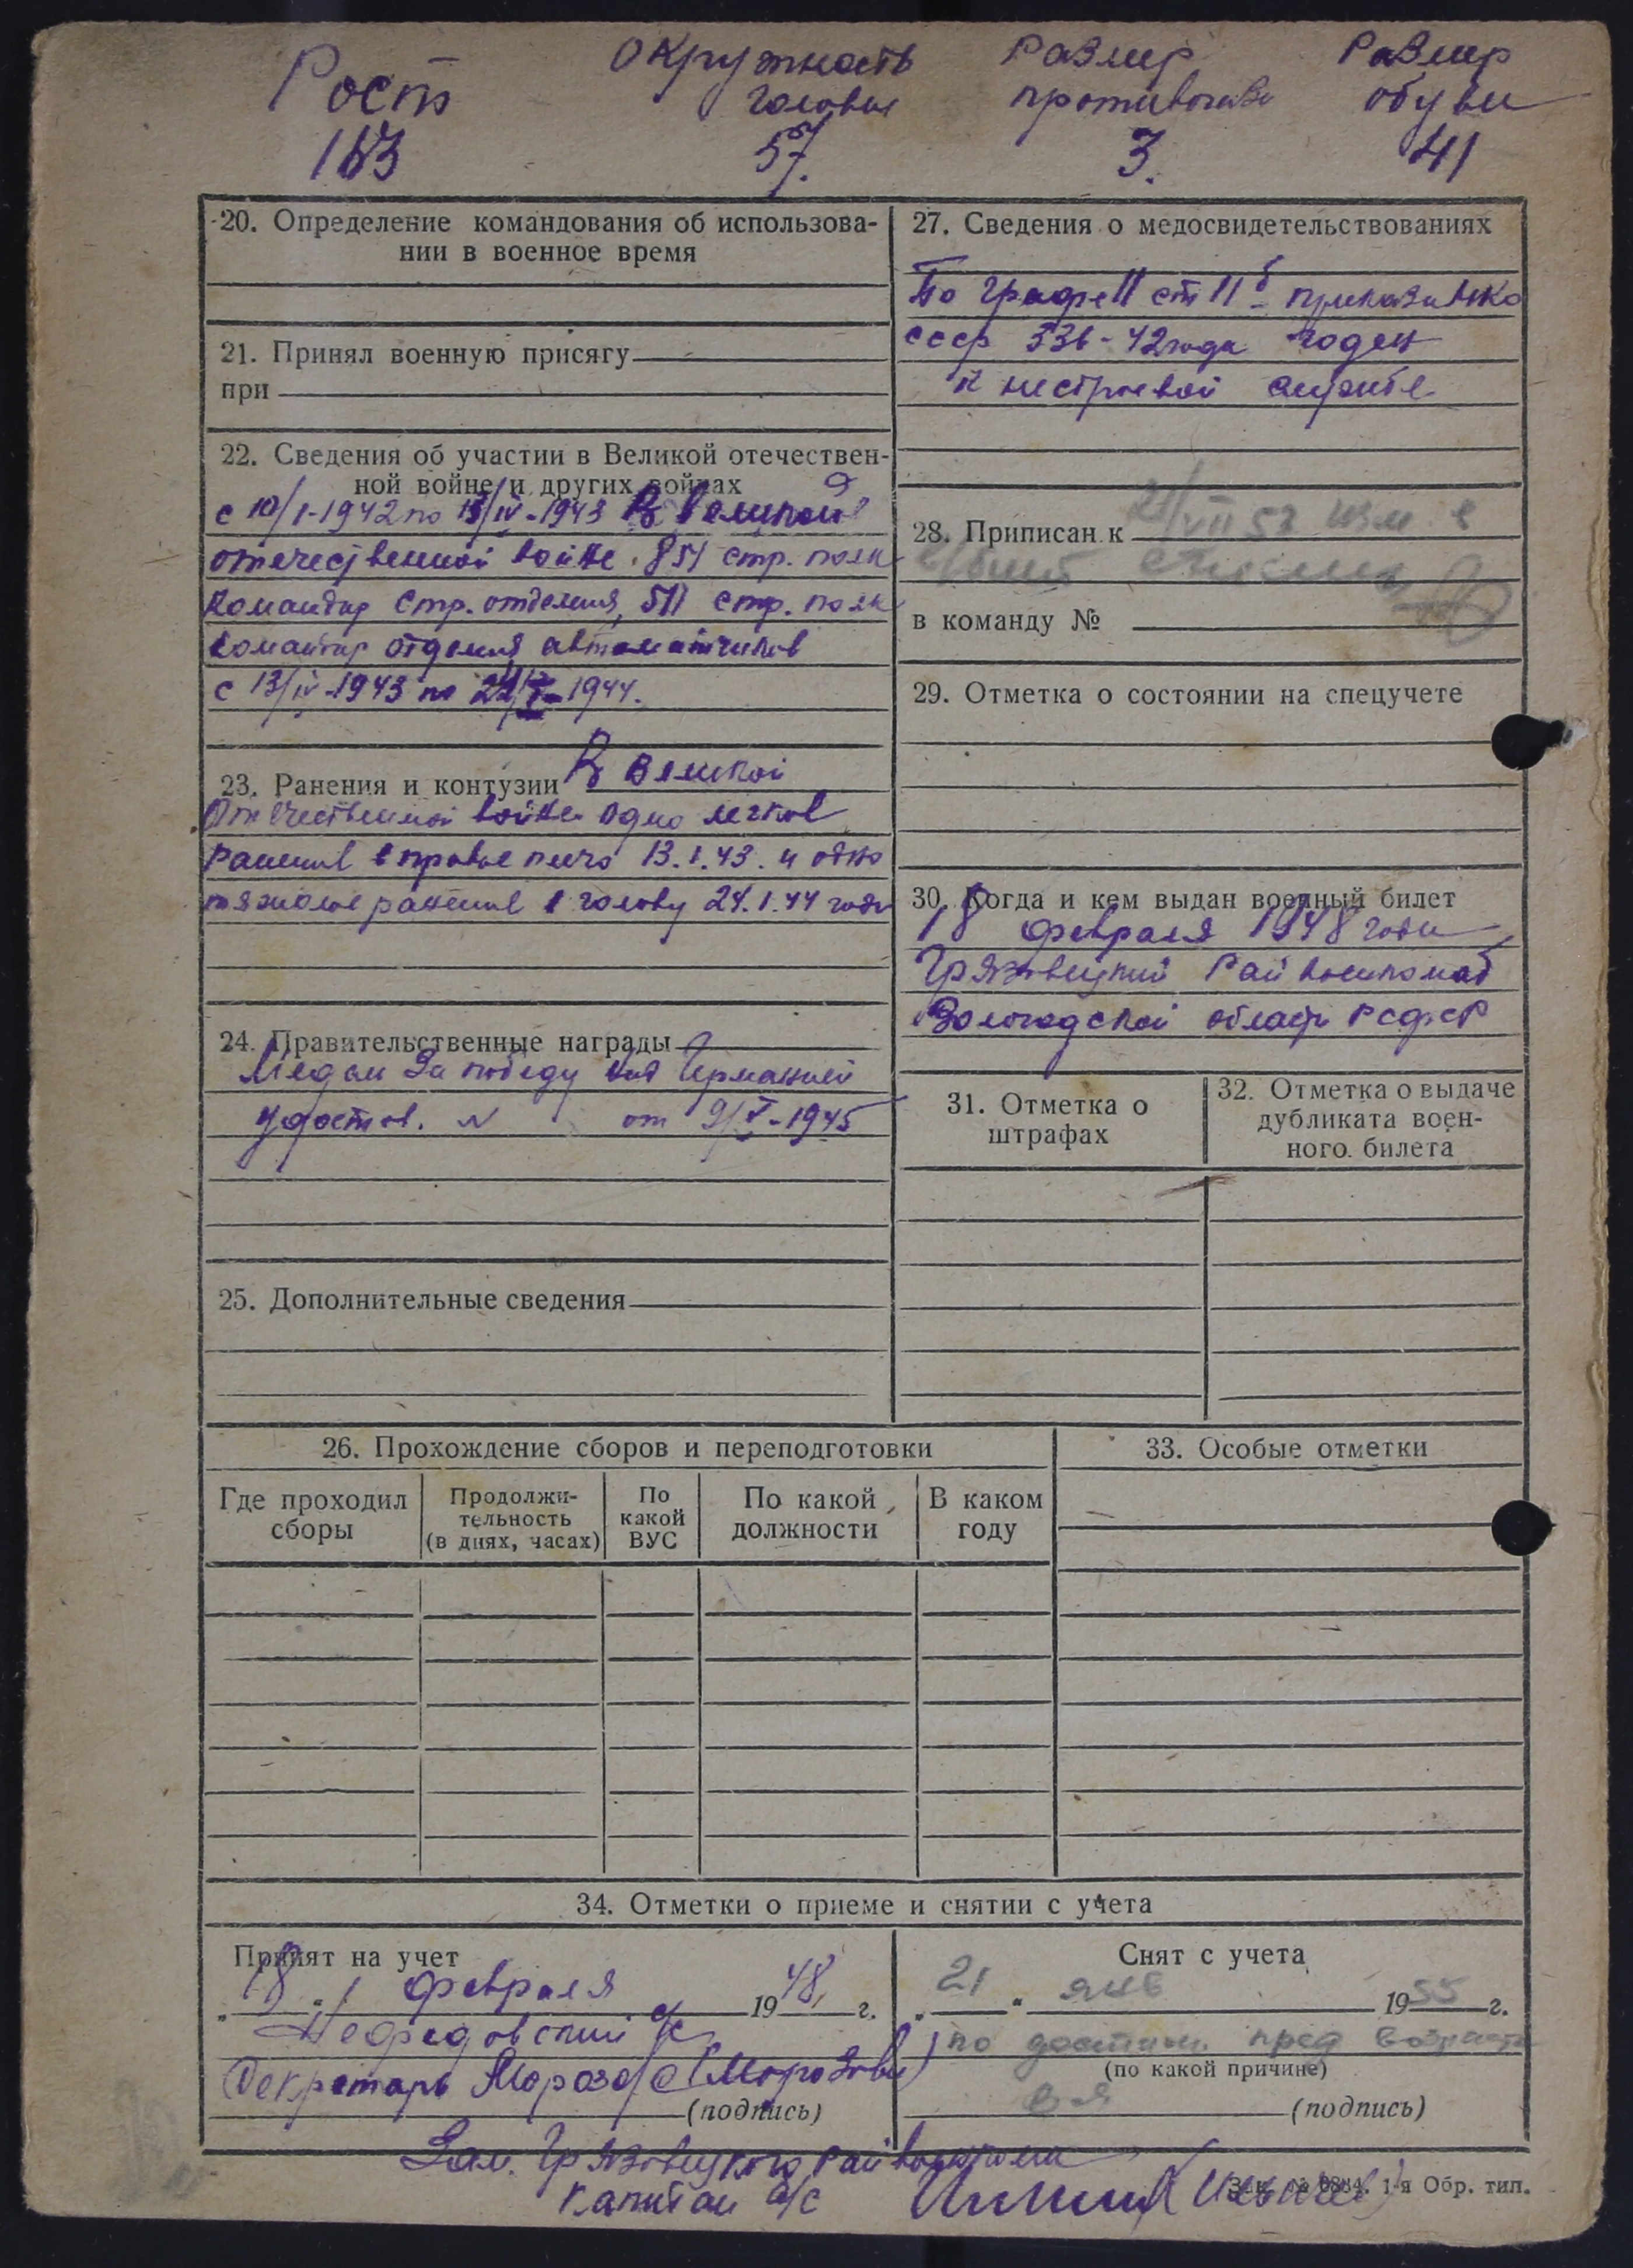 Рост
163
Окружность
головы
57.
Размер
противогаза
3.
Размер
обуви
41
20. Определение командования об использова-
нии в военное время
21. Принял военную присягу
при
22. Сведения об участии в Великой отечествен-
ной войне и других войнах
с 10/I-1942 по 13/IV-1943 В Великой
отечественной войне. 851 стр. полк
командир стр. отделения, 511 стр. полк
командир отделения автоматчиков
с 13/IV-1943 по 1944.
23. Ранения и контузии В Великой
Отечественной войне одно легкое
ранение в правое плечо 13.1.43. и одно
тяжолое ранение в голову 24.1.44 года
24. Правительственные награды
Медаль За победу над Германией
удостов. N от 9/V-1945
25. Дополнительные сведения
27. Сведения о медосвидетельствованиях
По графе II ст 11б приказа НКО
СССР 336-42 года годен
к нестроевой службе
28. Приписан к
в команду №
29. Отметка о состоянии на спецучете
30. Когда и кем выдан военный билет
18 февраля 1948 года
Грязовецкий Райвоенкомат
Вологодской области РСФСР
31. Отметка о
штрафах
32. Отметка о выдаче
дубликата воен-
ного билета
26. Прохождение сборов и переподготовки
Где проходил
сборы
Продолжи-
тельность
(в днях, часах)
По
какой
ВУС
По какой
должности
В каком
году
33. Особые отметки
34. Отметки о приеме и снятии с учета
Принят на учет
„18“ февраля 1948, г.
Нефедовский с/с
Секретарь Мороз (Морозова)
(подпись)
Снят с учета
„21“ янв 1955 г.
по достиж. пред возраста
(по какой причине)
(подпись)
Зам. Грязовецкого райвоенкома
Капитан а/с
Зак. № 6884. 1-я Обр. тип.